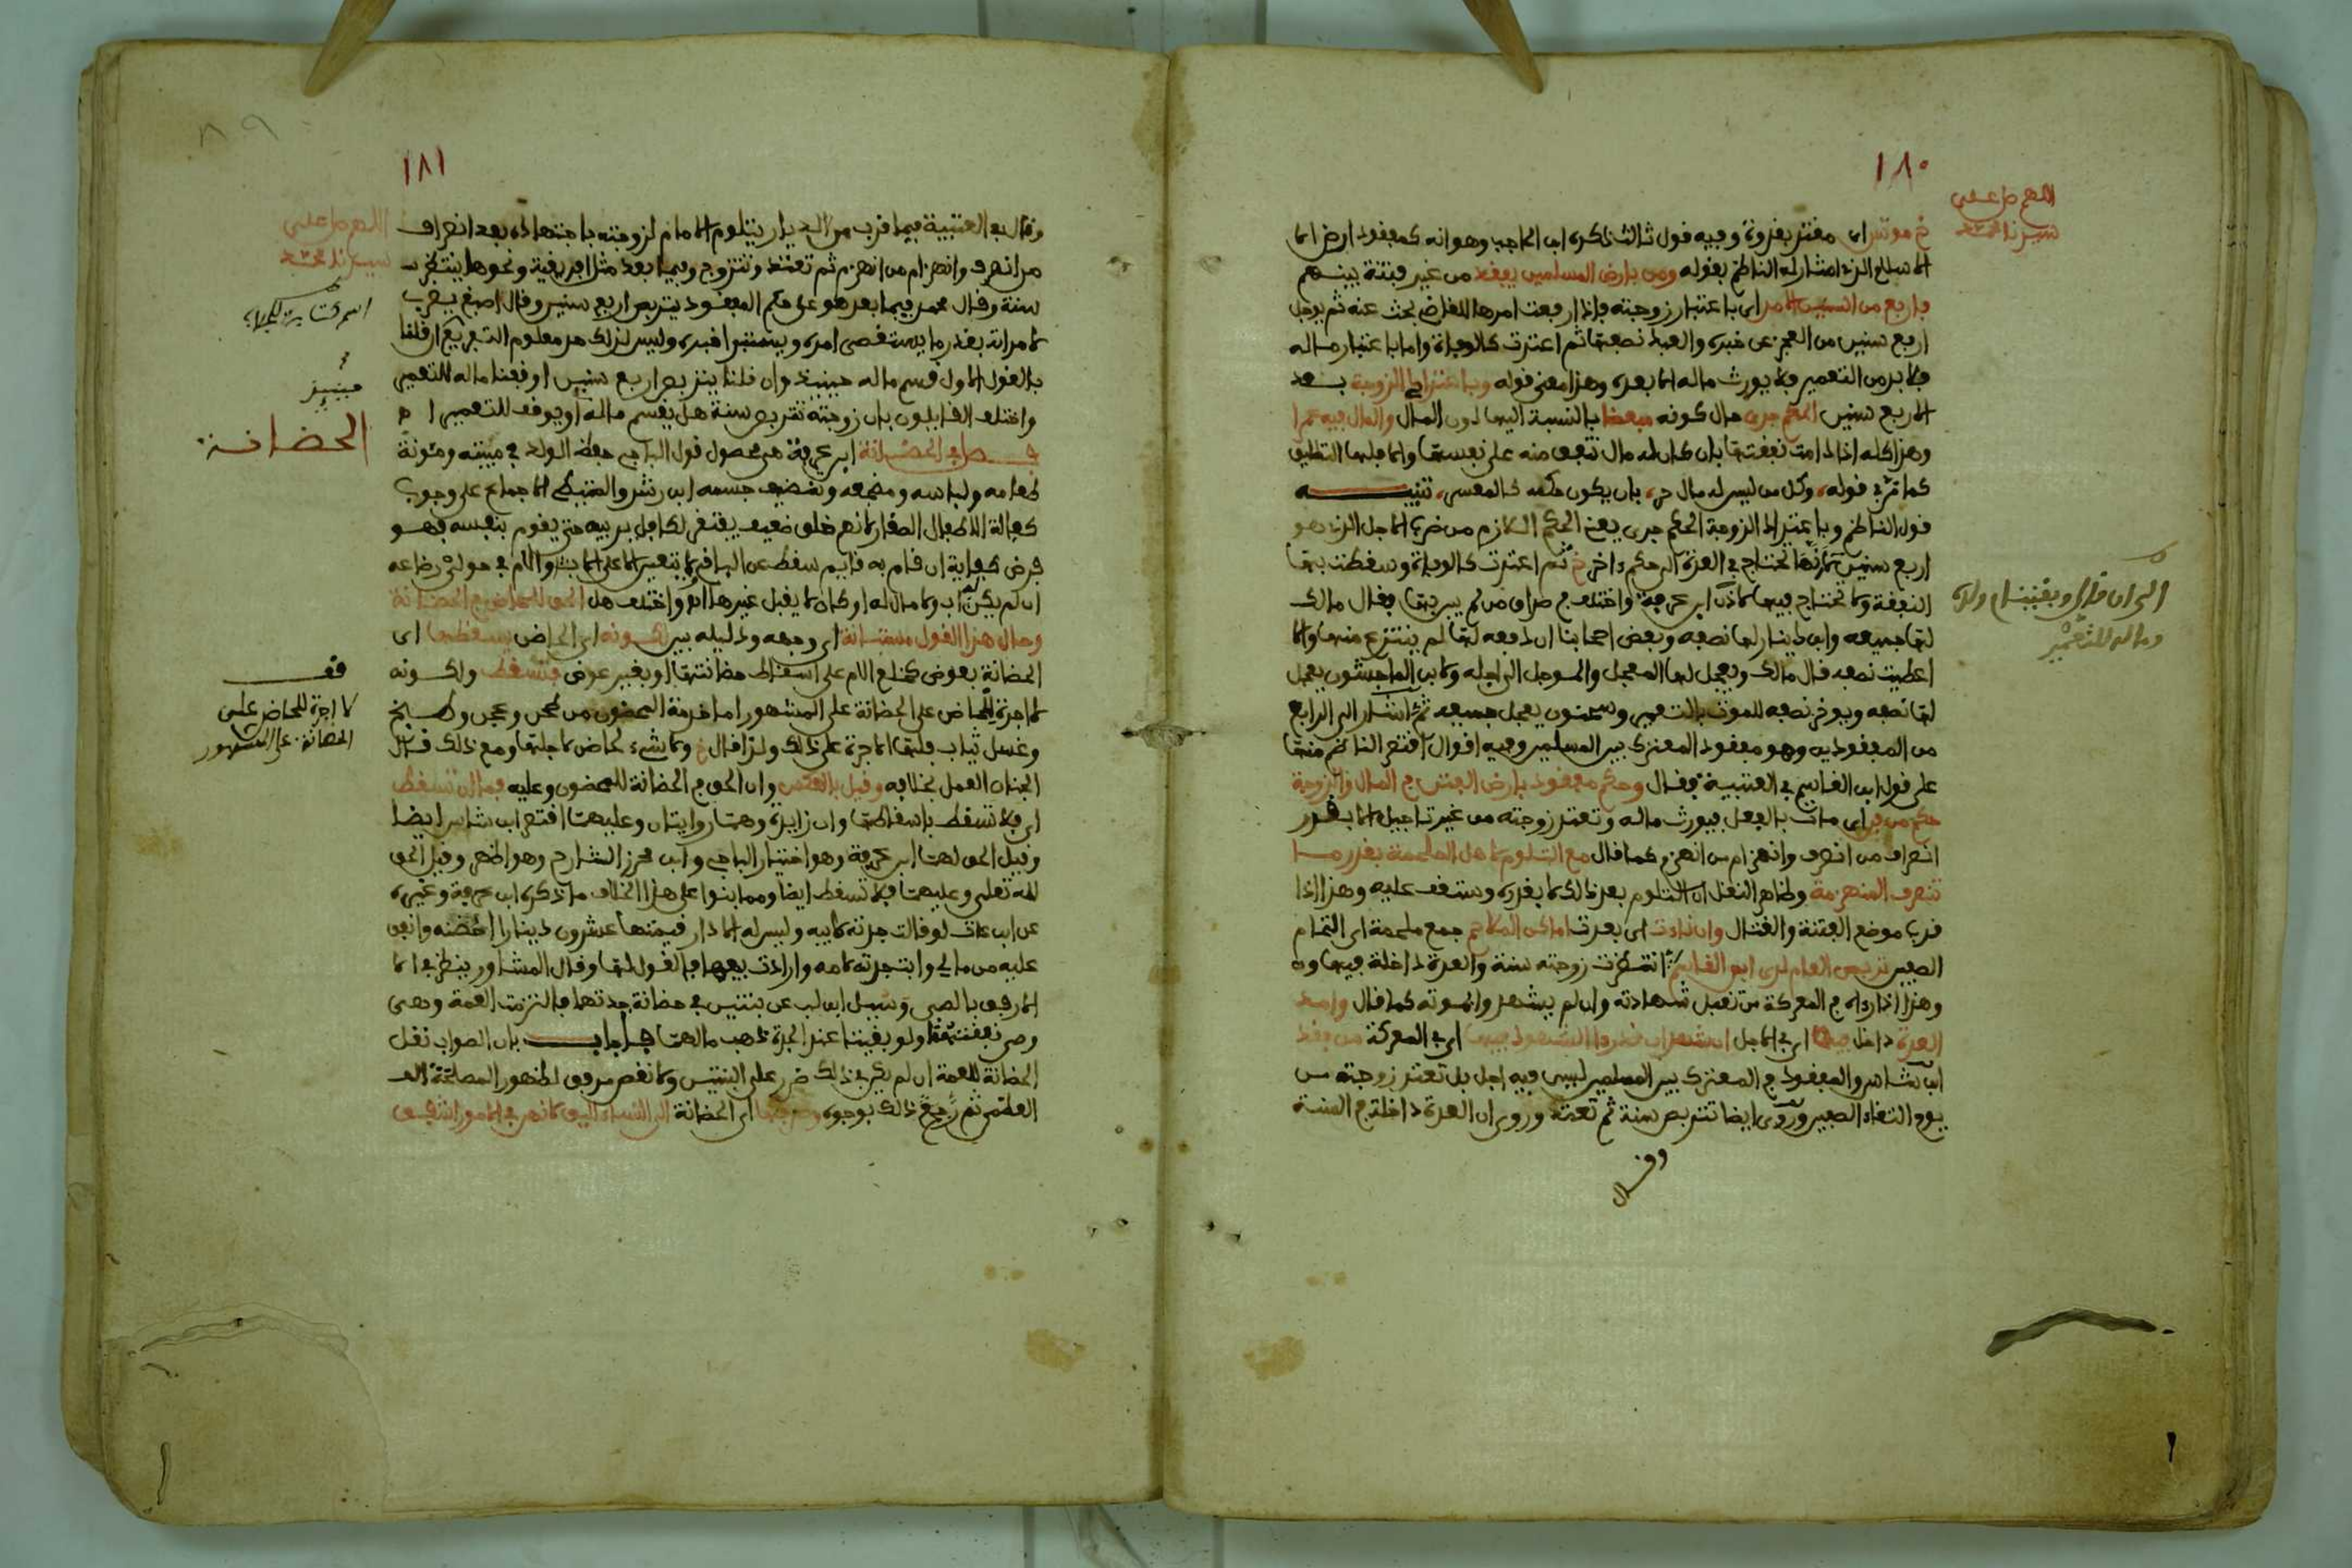 ١٨٠
اللهم صل على
سيدنا محمد
في موته اي مفتر بفروة وفيه قول ثالث ذكره ابن الحاجب وهو انه كمفقود ارض
الاسلام الذي اشار له الناظم بقوله ومن بارض المسلمين يفقد من غير فتنة بينهم
فاربع من السنين الامد اي باعتبار زوجته فاذا رفعت امرها للقاضي بحث عنه ثم يؤجل
اربع سنين من العجز عن خبره والعبد نصفها ثم اعتدت كالوفاة واما باعتبار ماله
فلا بد من التعمير فلا يورث ماله الا بعده وهذا معنى قوله وباعتداد الزوجة بعد
الاربع سنين الحكم جرى حال كونه مبعضا بالنسبة اليها دون المال والمال فيه عمرا
وهذا كله اذا دامت نفقتها بان كان له مال تنفق منه على نفسها والا فلها التطليق
كما مر في قوله وكل من ليس له مال حر بان يكون حكمه كالمعسر تنبيه
قول الناظم وباعتداد الزوجة الحكم جرى يعني الحكم اللازم من ضرب الاجل الذي هو
اربع سنين لانها تحتاج في العدة الى حكم اخر خ ثم اعتدت كالوفاة وسقطت بها
النفقة ولا تحتاج فيها لاذن ابن عرفة واختلف في صداق من لم يبن بها فقال مالك
لها جميعه وابن دينار لها نصفه وبعض اصحابنا ان دفعه لها لم ينتزع منها والا
اعطيت نصفه قال مالك ويعجل لها المعجل والمؤجل الى اجله ولابن الماجشون يعجل
لها نصفه ويوخر نصفه للموت بالتعمير وسحنون يعجل جميعه ثم اشار الى الرابع
من المفقودين وهو مفقود المعترك بين المسلمين وفيه اقوال اقتصر الناظم منها
على قول ابن القاسم في العتبية فقال وحكم مفقود بارض الفتن في المال والزوجة
حكم من فني اي مات بالفعل فيورث ماله وتعتد زوجته من غير تاجيل الا بقدر
انصراف من انصرف وانهزام من انهزم كما قال مع التلوم لاهل الملحمة بقدر ما
تنصرف المنهزمة وظاهر النقل ان التلوم بعد ذلك لا بقدره وستقف عليه وهذا اذا
قرب موضع الفتنة والقتال وان نات اي بعدت اماكن الملاحم جمع ملحمة اي التحام
الصفين تربص العام لدى ابن القاسم انتظرت زوجته سنة والعدة داخلة فيها
وهذا اذا راه في المعركة من تقبل شهادته وان لم يشهدوا بموته كما قال وامد
العدة داخل فيه اي في الاجل ان شهد ان قد راى الشهود فيها اي في المعركة من فقد
ابن شاس والمفقود في المعترك بين المسلمين ليس فيه اجل بل تعتد زوجته من
يوم التقاء الصفين وروي ايضا تتربص سنة ثم تعتد وروي ان العدة داخلة في السنة
وقال
١٨١
اللهم صل على
سيدنا محمد
وقال في العتبية فيما قرب من الديار يتلوم الامام لزوجته باجتهاده بعد انصراف
من انصرف وانهزام من انهزم ثم تعتد وتتزوج وفيما بعد مثل افريقية ونحوها ينتظر
سنة وقال محمد فيما بعد هو على حكم المفقود يتربص اربع سنين وقال اصبغ يضرب
لامراته بقدر ما يستقصى امره ويستبرا خبره وليس لذلك حد معلوم التفريع ان قلنا
بالقول الاول قسم ماله حينئذ وان قلنا يتربص اربع سنين اوقفنا ماله للتعمير
واختلف القائلون بان زوجته تتربص سنة هل يقسم ماله او يوقف للتعمير
الحضانة
فصل في الحضانة ابن عرفة هي محصول قول الباجي حفظ الولد في مبيته ومؤنة
طعامه ولباسه ومضجعه وتنظيف جسمه ابن رشد والمتيطي الاجماع على وجوب
كفالة الاطفال الصغار لانهم خلق ضعيف يفتقر لكافل يربيه حتى يقوم بنفسه فهو
فرض كفاية ان قام به قائم سقط عن الباقي لا يتعين الا على الاب والام في حولي رضاعه
ان لم يكن اب ولا مال له او كان لا يقبل غيرها واختلف هل الحق للحاضن في الحضانة
وحال هذا القول مستبانة اي وجهه ودليله بين لكونه اي الحاضن يسقطها اي
الحضانة بعوض كخلع الام على اسقاط حضانتها او بغير عوض فتسقط ولكونه
قف
لا اجرة للحاضن على
الحضانة على المشهور
لا اجرة للحاضن على الحضانة على المشهور اما خدمة المحضون من طحن وعجن وطبخ
وغسل ثياب فلها الاجرة على ذلك ولذا قال خ ولا شيء لحاضن لاجلها ومع ذلك قال
الجنان العمل بخلافه وقيل بالعكس وان الحق في الحضانة للمحضون وعليه فما ان تسقط
اي فلا تسقط باسقاطها وان زايدة وهما روايتان وعليهما اقتصر ابن شاس ايضا
وقيل الحق لهما ابن عرفة وهو اختيار الباجي وابن محرز الشارح وهو اظهر وقيل الحق
لله تعلى وعليهما فلا تسقط ايضا ومما بنوا على هذا الخلاف ما ذكره ابن عرفة وغيره
عن ابن عات لو قالت جدته لابيه وليس له الا دار قيمتها عشرون دينارا احضنه وانفق
عليه من مالي وابت جدته لامه وارادت بيعها فالقول لها وقال المشاور ينظر في
الارفق بالصبي وسئل ابن لب عن بنتين في حضانة جدتهما فالتزمت العمة وهي
وصي نفقتهما ولو بقيتا عند الجدة ذهب مالهما فاجاب بان الصواب نقل
الحضانة للعمة ان لم يكن في ذلك ضرر على البنتين ولا نقص مرفق لظهور المصلحة
العظمى ثم رجح ذلك بوجوه وصرفها اي الحضانة الى النساء اليق لانهن في الامور اشفق